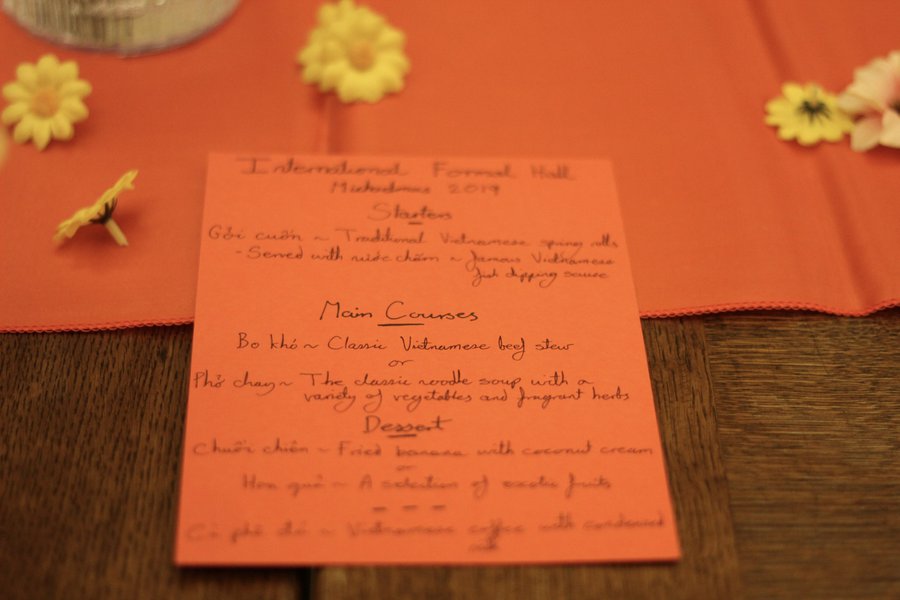 International Formal Hall
Michaelmas 2019
Starters
Gỏi cuốn ~ Traditional Vietnamese spring rolls
- Served with nước chấm ~ famous Vietnamese
fish dipping sauce
Main Courses
Bo khó ~ Classic Vietnamese beef stew
or
Phở chay ~ The classic noodle soup with a
variety of vegetables and fragrant herbs
Dessert
Chuối chiên ~ Fried banana with coconut cream
or
Hoa quả ~ A selection of exotic fruits
- - -
Cà phê đá ~ Vietnamese coffee with condensed
milk